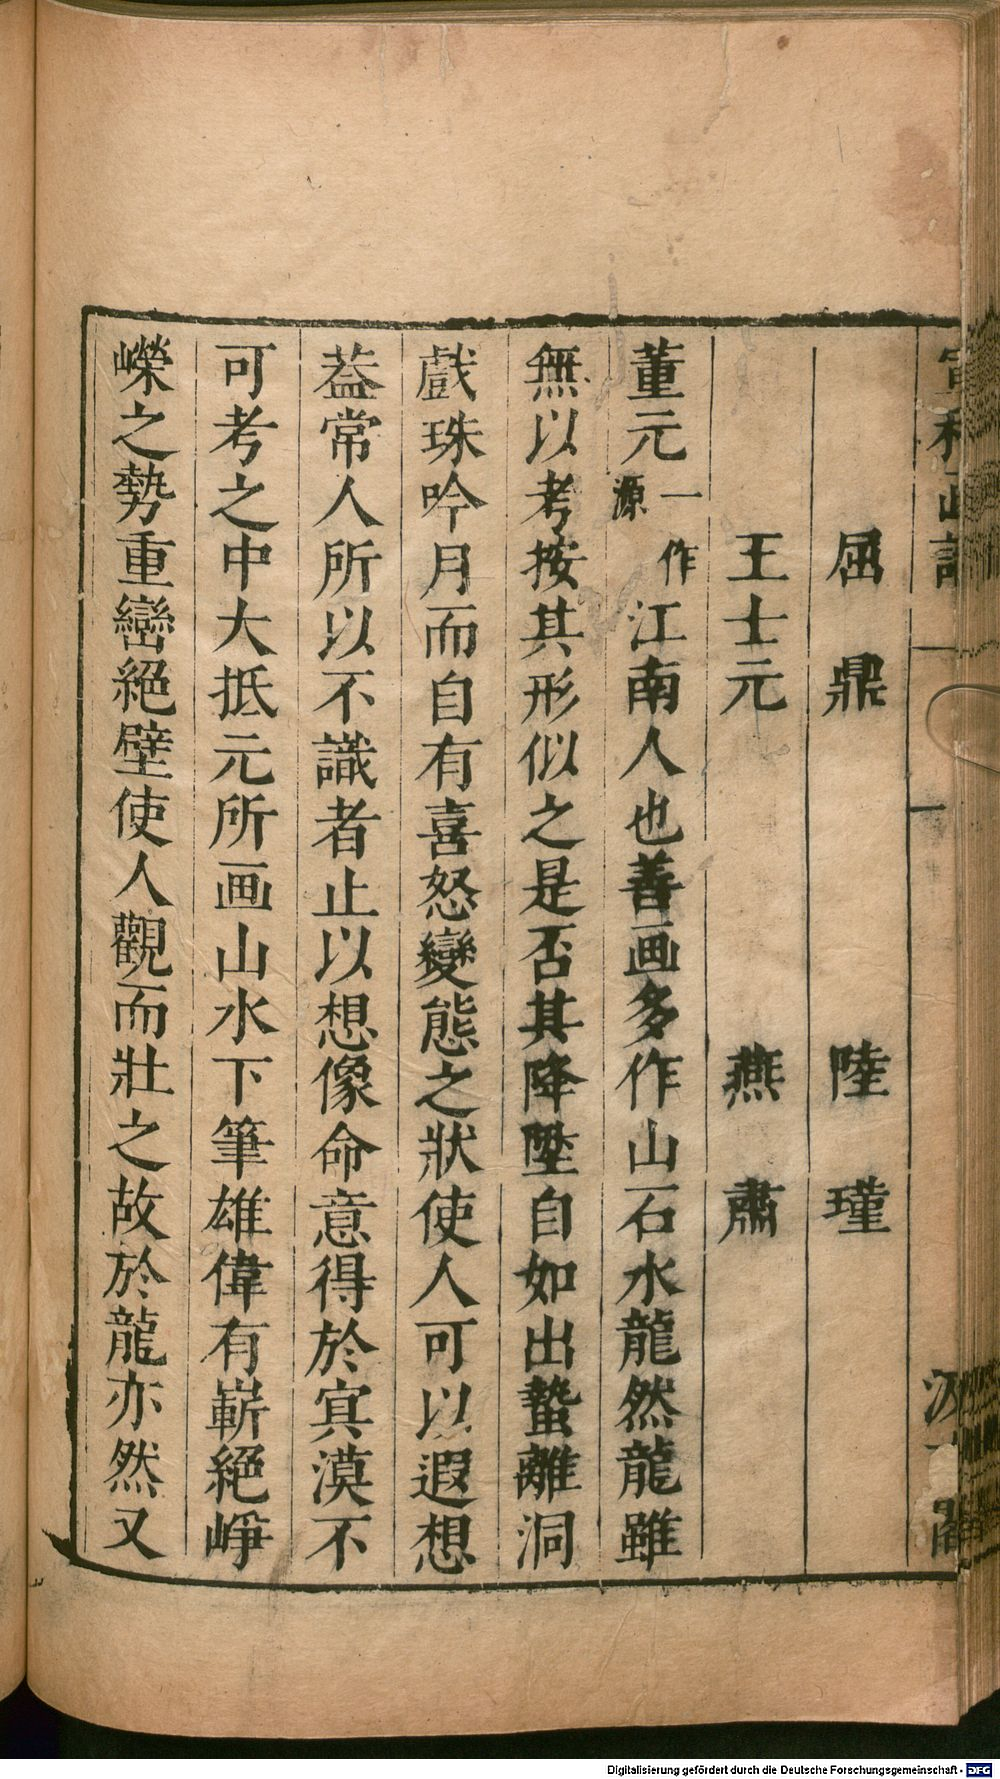 屈鼎　陸瑾
王士元　燕肅
董元一作源江南人也善画多作山石水龍然龍雖
無以考按其形似之是否其降陞自如出蟄離洞
戲珠吟月而自有喜怒變態之狀使人可以遐想
葢常人所以不識者止以想像命意得於寞漠不
可考之中大抵元所画山水下筆雄偉有嶄絕崢
嶸之勢重巒絕壁使人觀而壯之故於龍亦然又
Digitalisierung gefördert durch die Deutsche Forschungsgemeinschaft - DFG